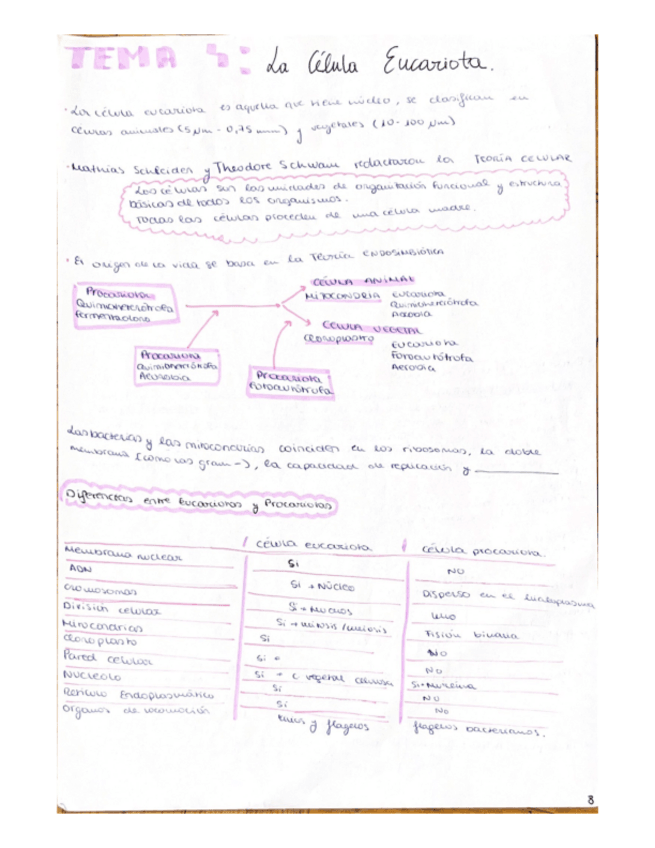 TEMA 5: La Célula Eucariota.
· La célula eucariota es aquella que tiene núcleo, se clasifican en
células animales (5 µm - 0,75 mm) y vegetales (10-100 µm)
· Mathias Schleiden y Theodore Schwann redactaron la TEORÍA CELULAR
Las células son las unidades de organización funcional y estructura
básicas de todos los organismos.
Todas las células proceden de una célula madre.
· El origen de la vida se basa en la Teoría ENDOSIMBIÓTICA
Procariota
Quimioheterótrofa
Fermentadora
Procariota
Quimioheterótrofa
Aerobia
Procariota
Fotoautótrofa
CÉLULA ANIMAL
MITOCONDRIA
Eucariota
Quimioheterótrofa
Aerobia
CÉLULA VEGETAL
Cloroplasto
Eucariota
Fotoautótrofa
Aerobia
Las bacterias y las mitocondrias coinciden en los ribosomas, la doble
membrana (como las gram -), la capacidad de replicación y
Diferencias entre Eucariotas y Procariotas
célula eucariota célula procariota.
Membrana nuclear Si NO
ADN Si → Núcleo Disperso en el
Cromosomas Si → Muchos Uno
División celular Si → mitosis / meiosis Fisión binaria
Mitocondrias Si No
Cloroplasto Si No
Pared celular Si → c vegetal celulosa Si → Mureina
Nucleolo Si NO
Retículo Endoplasmático Si No
Órganos de locomoción cilios y flagelos flagelos bacterianos.
8